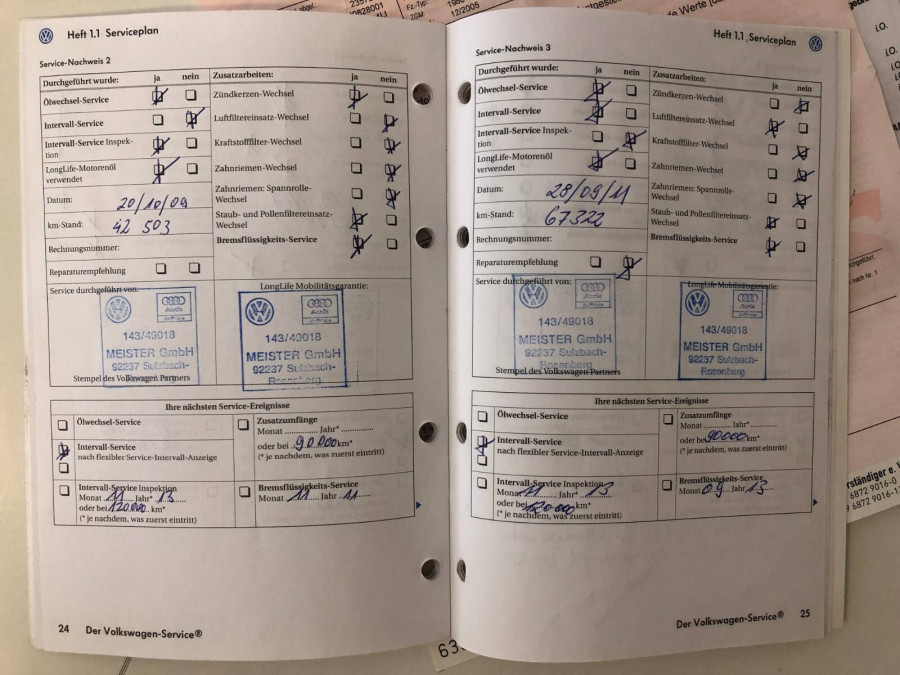 Heft 1.1 Serviceplan
Service-Nachweis 2
Durchgeführt wurde: ja nein
Ölwechsel-Service
Intervall-Service
Intervall-Service Inspek-
tion
LongLife-Motorenöl
verwendet
Datum: 20/10/09
km-Stand: 42 503
Rechnungsnummer:
Reparaturempfehlung
Zusatzarbeiten: ja nein
Zündkerzen-Wechsel
Luftfiltereinsatz-Wechsel
Kraftstofffilter-Wechsel
Zahnriemen-Wechsel
Zahnriemen: Spannrolle-
Wechsel
Staub- und Pollenfiltereinsatz-
Wechsel
Bremsflüssigkeits-Service
Service durchgeführt von:
143/49018
MEISTER GmbH
92237 Sulzbach-
Stempel des Volkswagen Partners
LongLife Mobilitätsgarantie:
Audi
143/49018
MEISTER GmbH
92237 Sulzbach-
Rosenberg
Ihre nächsten Service-Ereignisse
Ölwechsel-Service
Intervall-Service
nach flexibler Service-Intervall-Anzeige
Intervall-Service Inspektion
Monat 11 Jahr* 13
oder bei 120.000 km*
(* je nachdem, was zuerst eintritt)
Zusatzumfänge
Monat ............ Jahr* ............
oder bei 90.000 km*
(* je nachdem, was zuerst eintritt)
Bremsflüssigkeits-Service
Monat 11 Jahr 11
24 Der Volkswagen-Service®
Heft 1.1 Serviceplan
Service-Nachweis 3
Durchgeführt wurde: ja nein
Ölwechsel-Service
Intervall-Service
Intervall-Service Inspek-
tion
LongLife-Motorenöl
verwendet
Datum: 28/09/11
km-Stand: 67322
Rechnungsnummer:
Reparaturempfehlung
Zusatzarbeiten: ja nein
Zündkerzen-Wechsel
Luftfiltereinsatz-Wechsel
Kraftstofffilter-Wechsel
Zahnriemen-Wechsel
Zahnriemen: Spannrolle-
Wechsel
Staub- und Pollenfiltereinsatz-
Wechsel
Bremsflüssigkeits-Service
Service durchgeführt von:
143/49018
MEISTER GmbH
92237 Sulzbach-
Rosenberg
Stempel des Volkswagen Partners
LongLife Mobilitätsgarantie:
143/49018
MEISTER GmbH
92237 Sulzbach-
Rosenberg
Ihre nächsten Service-Ereignisse
Ölwechsel-Service
Intervall-Service
nach flexibler Service-Intervall-Anzeige
Intervall-Service Inspektion
Monat 11 Jahr* 13
oder bei 120000 km*
(* je nachdem, was zuerst eintritt)
Zusatzumfänge
Monat ............ Jahr* ............
oder bei 90000 km*
(* je nachdem, was zuerst eintritt)
Bremsflüssigkeits-Service
Monat 09 Jahr 13
Der Volkswagen-Service® 25
12/2005
Fz.-Typ:
i.O.
nach Nr. 1
6872 9016-0